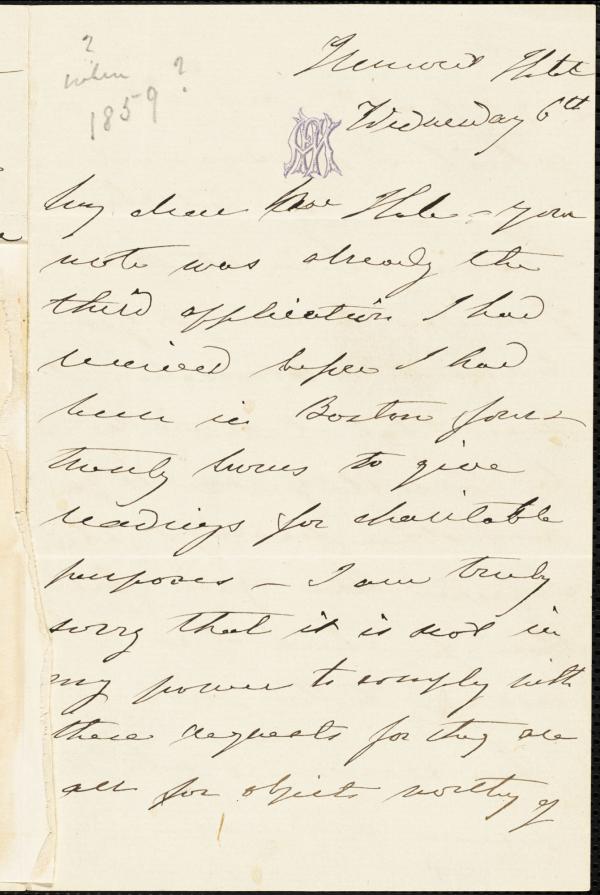 ?
when ?
1859
Tremont Hotel
Wednesday 6th
My dear Mr Hale – your
note was already the
third application I had
received before I had
been in Boston four–
twenty hours to give
readings for charitable
purposes – I am truly
sorry that it is not in
my power to comply with
these requests for they are
all for objects worthy of